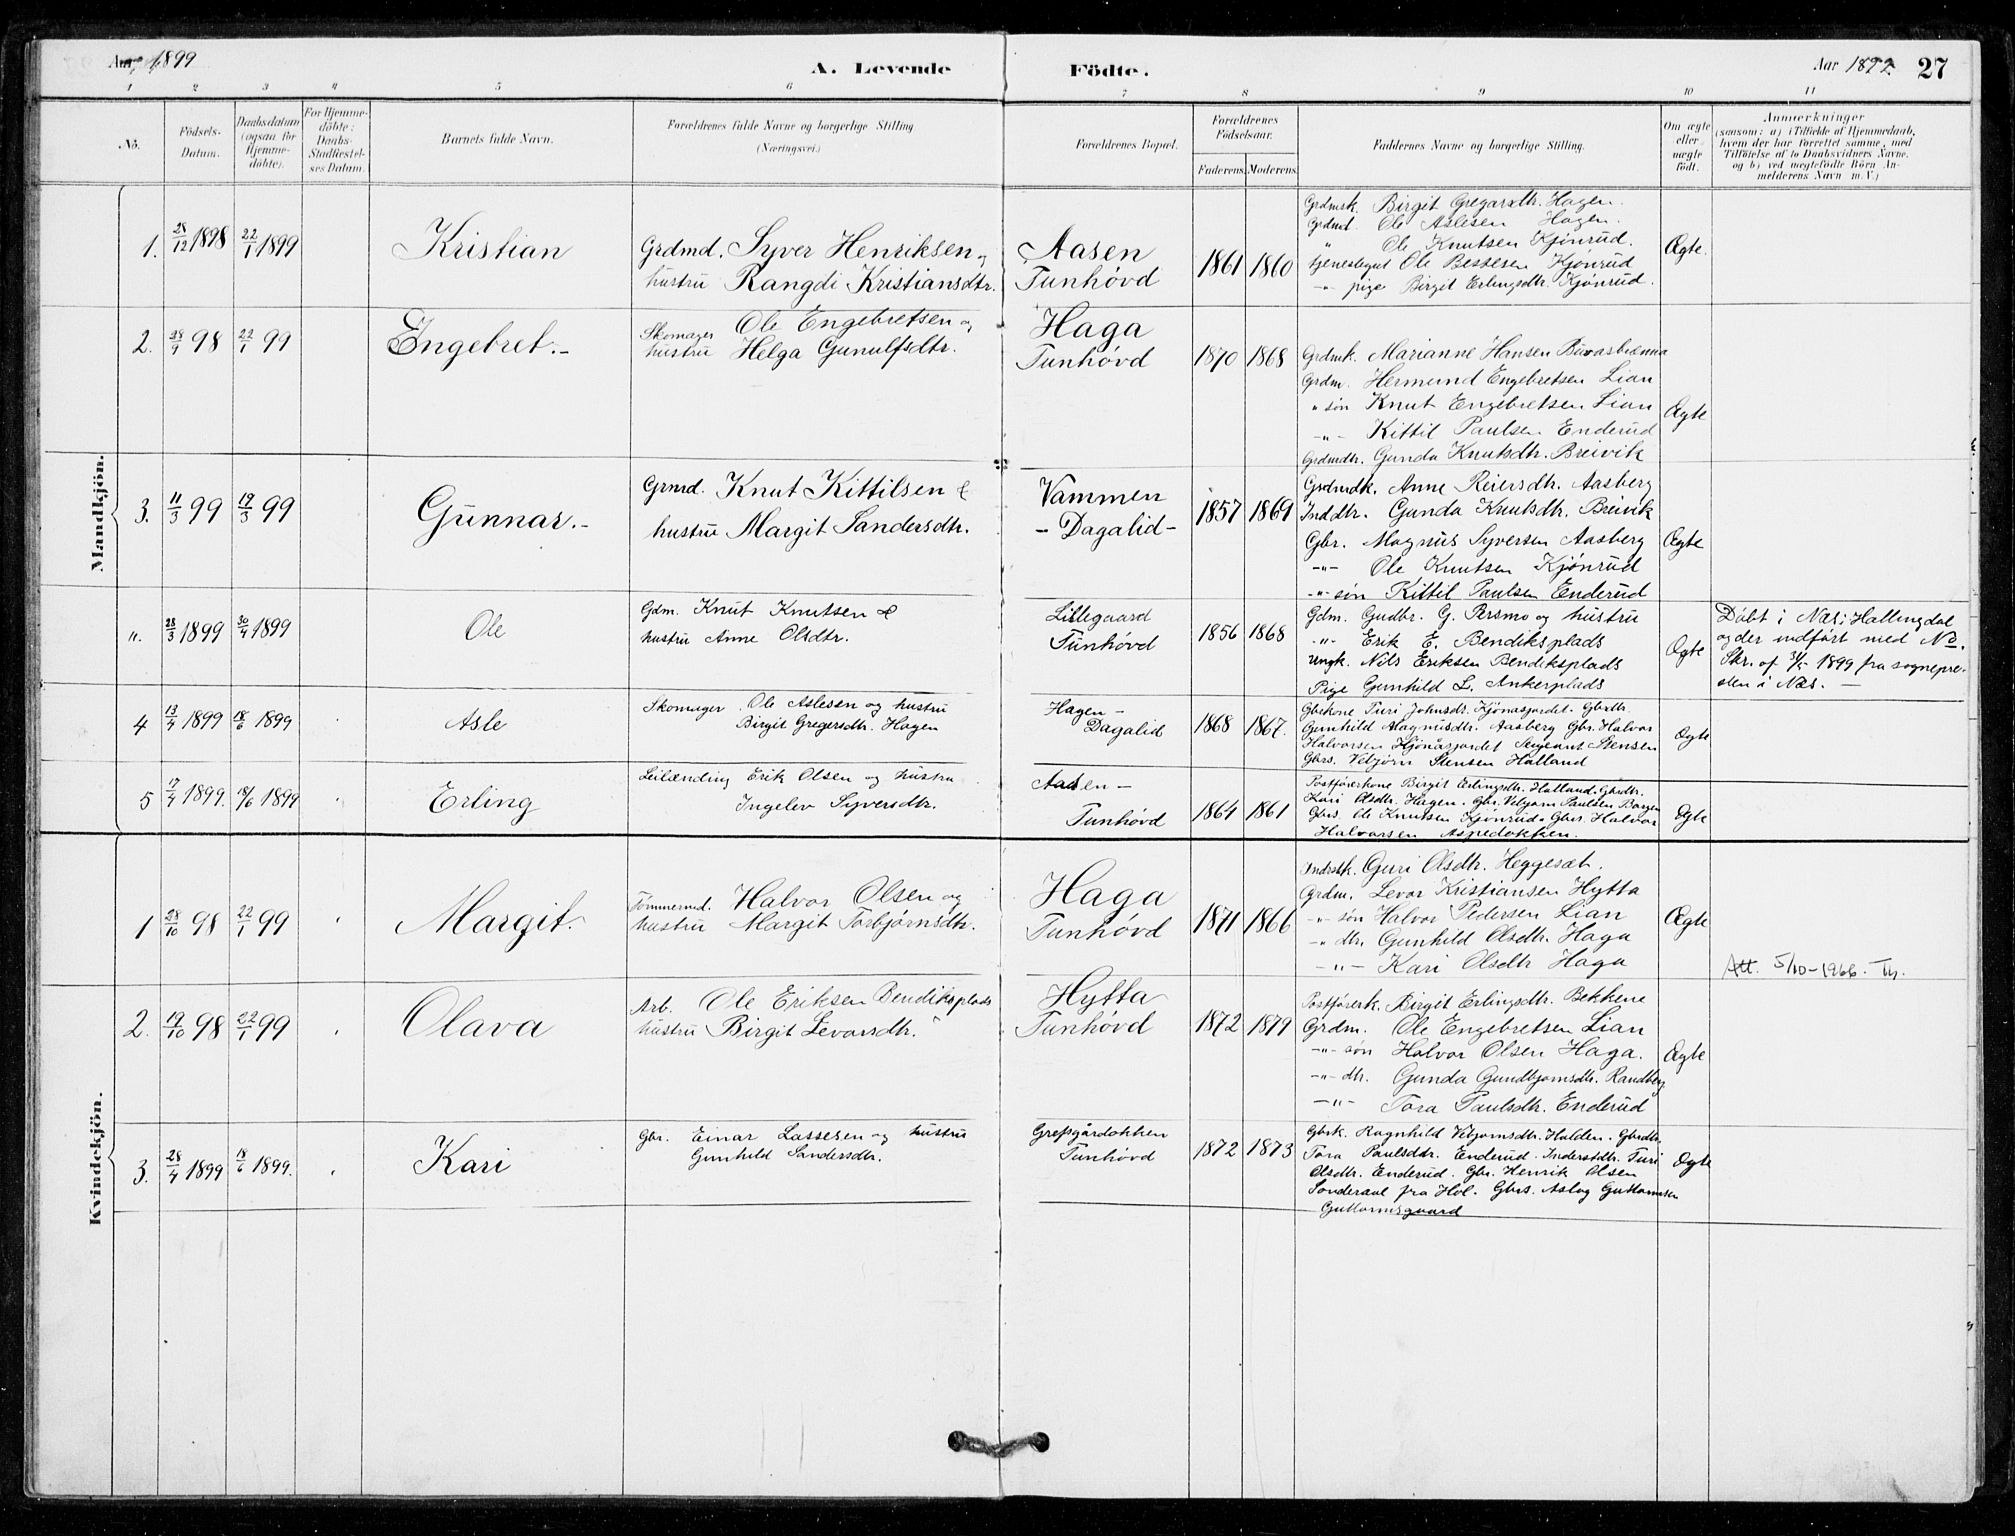 Aar 1899
A. Levende Födte.
Aar 1899 27
1 2 3 4 5 6 7 8 9 10 11
No.
Födsels-Datum.
Daabsdatum (ogsaa for Hjemmedöbte).
For Hjemmedöbte: Daabs-Stadfæstelses Datum.
Barnets fulde Navn.
Forældrenes fulde Navne og borgerlige Stilling
(Næringsvei.)
Forældrenes Bopæl.
Forældrenes Födselsaar.
Faderens. Moderens.
Faddernes Navne og borgerlige Stilling.
Om ægte eller uægte födt.
Anmærkninger
(saasom: a) i Tilfælde af Hjemmedaab,
hvem der har forrettet samme, med
Tilföielse af to Daabsvidners Navne.
og b) ved uægtefödte Börn An-
melderens Navn m. V.)
Mandkjön.
1. 28/12 1898 22/1 1899 Kristian
Grdmd. Syver Henriksen og
hustru Rangdi Kristiansdtr.
Aasen
Tunhövd
1861 1860
Grdmsk. Birgit Gregarsdtr. Hagen.
Grdmd. Ole Aslesen Hagen.
" Ole Knutsen Kjönrud.
tjenestegut Ole Bessesen Kjönrud
-"- pige Birgit Erlingsdtr. Kjönrud.
Ægte
2. 28/9 98 22/1 99 Engebret.-
Skomager Ole Engebretsen og
hustru Helga Gunulfsdtr.
Haga
Tunhövd
1870 1868
Grdmk. Marianne Hansen
Grdm. Hermund Engebretsen Lian
" sön Knut Engebretsen Lian
-"- Kittil Paulsen Enderud
Grdmdtr. Gunda Knutsdtr. Breivik
Ægte
3. 11/3 99 19/3 99 Gunnar.-
Grmd. Knut Kittilsen &
hustru Margit Sandersdtr.
Vammen
- Dagalid -
1857 1869
Grdmdk. Anne Reiersdtr. Aasberg
Inddtr. Gunda Knutsdtr. Breivik
Gbr. Magnus Syversen Aasberg
-"- Ole Knutsen Kjönrud
-"- sön Kittil Paulsen Enderud
Ægte
". 28/3 1899 30/4 1899 Ole
Gdm. Knut Knutsen &
hustru Anne Olsdtr.
Lillegaard
Tunhövd
1856 1868
Gdm. Gudbr. G. Persmo og hustru
-"- Erik E. Bendiksplads
Ungk. Nils Eriksen Bendiksplads
Pige Gunhild L. Ankerplads
Ægte
Döbt i Næs i Hallingdal
og der indfört med No.
Skr. af 31/5 1899 fra sognepre-
sten i Næs. -
4 13/4 1899 18/6 1899 Asle
Skomager Ole Aslesen og hustru
Birgit Gregersdtr. Hagen
Hagen -
Dagalid
1868 1867.
Gbrkone Turi Johnsdr. Kjönåsjordet. Gbrdtr.
Gunhild Magnusdtr. Aasberg Gbr. Halvor
Halvorsen Kjönåsjordet Sergeant Stensen
Gbrs. Vebjörn Stensen Halland
Ægte
5 17/4 1899. 18/6 1899 Erling
Leilænding Erik Olsen og hustru
Ingelev Syversdtr.
Aasen -
Tunhövd
1864 1861
Postförerkone Birgit Erlingsdtr. Halland. Gbrdtr.
Kari Olsdtr. Hagen. Gbr. Vebjørn Paulsen Borgen
Gbrs. Ole Knutsen Kjönrud. Gbrs. Halvor
Halvorsen Aspedokken.
Ægte
Kvindekjön.
1 28/10 98 22/1 99 Margit.
Tömmermd. Halvor Olsen og
hustru Margit Torbjörnsdtr.
Haga
Tunhövd
1871 1866
Indrstk. Guri Olsdtr. Heggesæt.
Grdm. Levor Kristiansen Hytta
-"- sön Halvor Pedersen Lian
-"- dtr. Gunhild Olsdtr. Haga
-"- Kari Olsdtr Haga
Ægte
Att. 5/10-1966. Th.
2. 19/10 98 22/1 99 Olava
Arb. Ole Eriksen Bendiksplads
hustru Birgit Levorsdtr. "
Hytta
Tunhövd
1872 1879
Postförerk. Birgit Erlingsdtr. Bekkene
Grdm. Ole Engebretsen Lian
-"- sön Halvor Olsen Haga.
-"- dtr. Gunda Gundbjørnsdtr. Randberg
-"- Tora Paulsdtr. Enderud
Ægte
3. 28/4 1899 18/6 1899. Kari
Gbr. Einar Lassesen og hustru
Gunhild Sandersdtr.
Grefsgårdokken
Tunhövd
1872 1873
Gbrk. Ragnhild Vebjørnsdtr. Halden. Gbrdtr.
Tora Paulsdtr. Enderud. Inderstdtr. Turi
Olsdtr. Enderud. Gbr. Henrik Olsen
Sönderaal fra Hol. Gbrs. Aslag Guttormsen
Guttormsgaard
Ægte